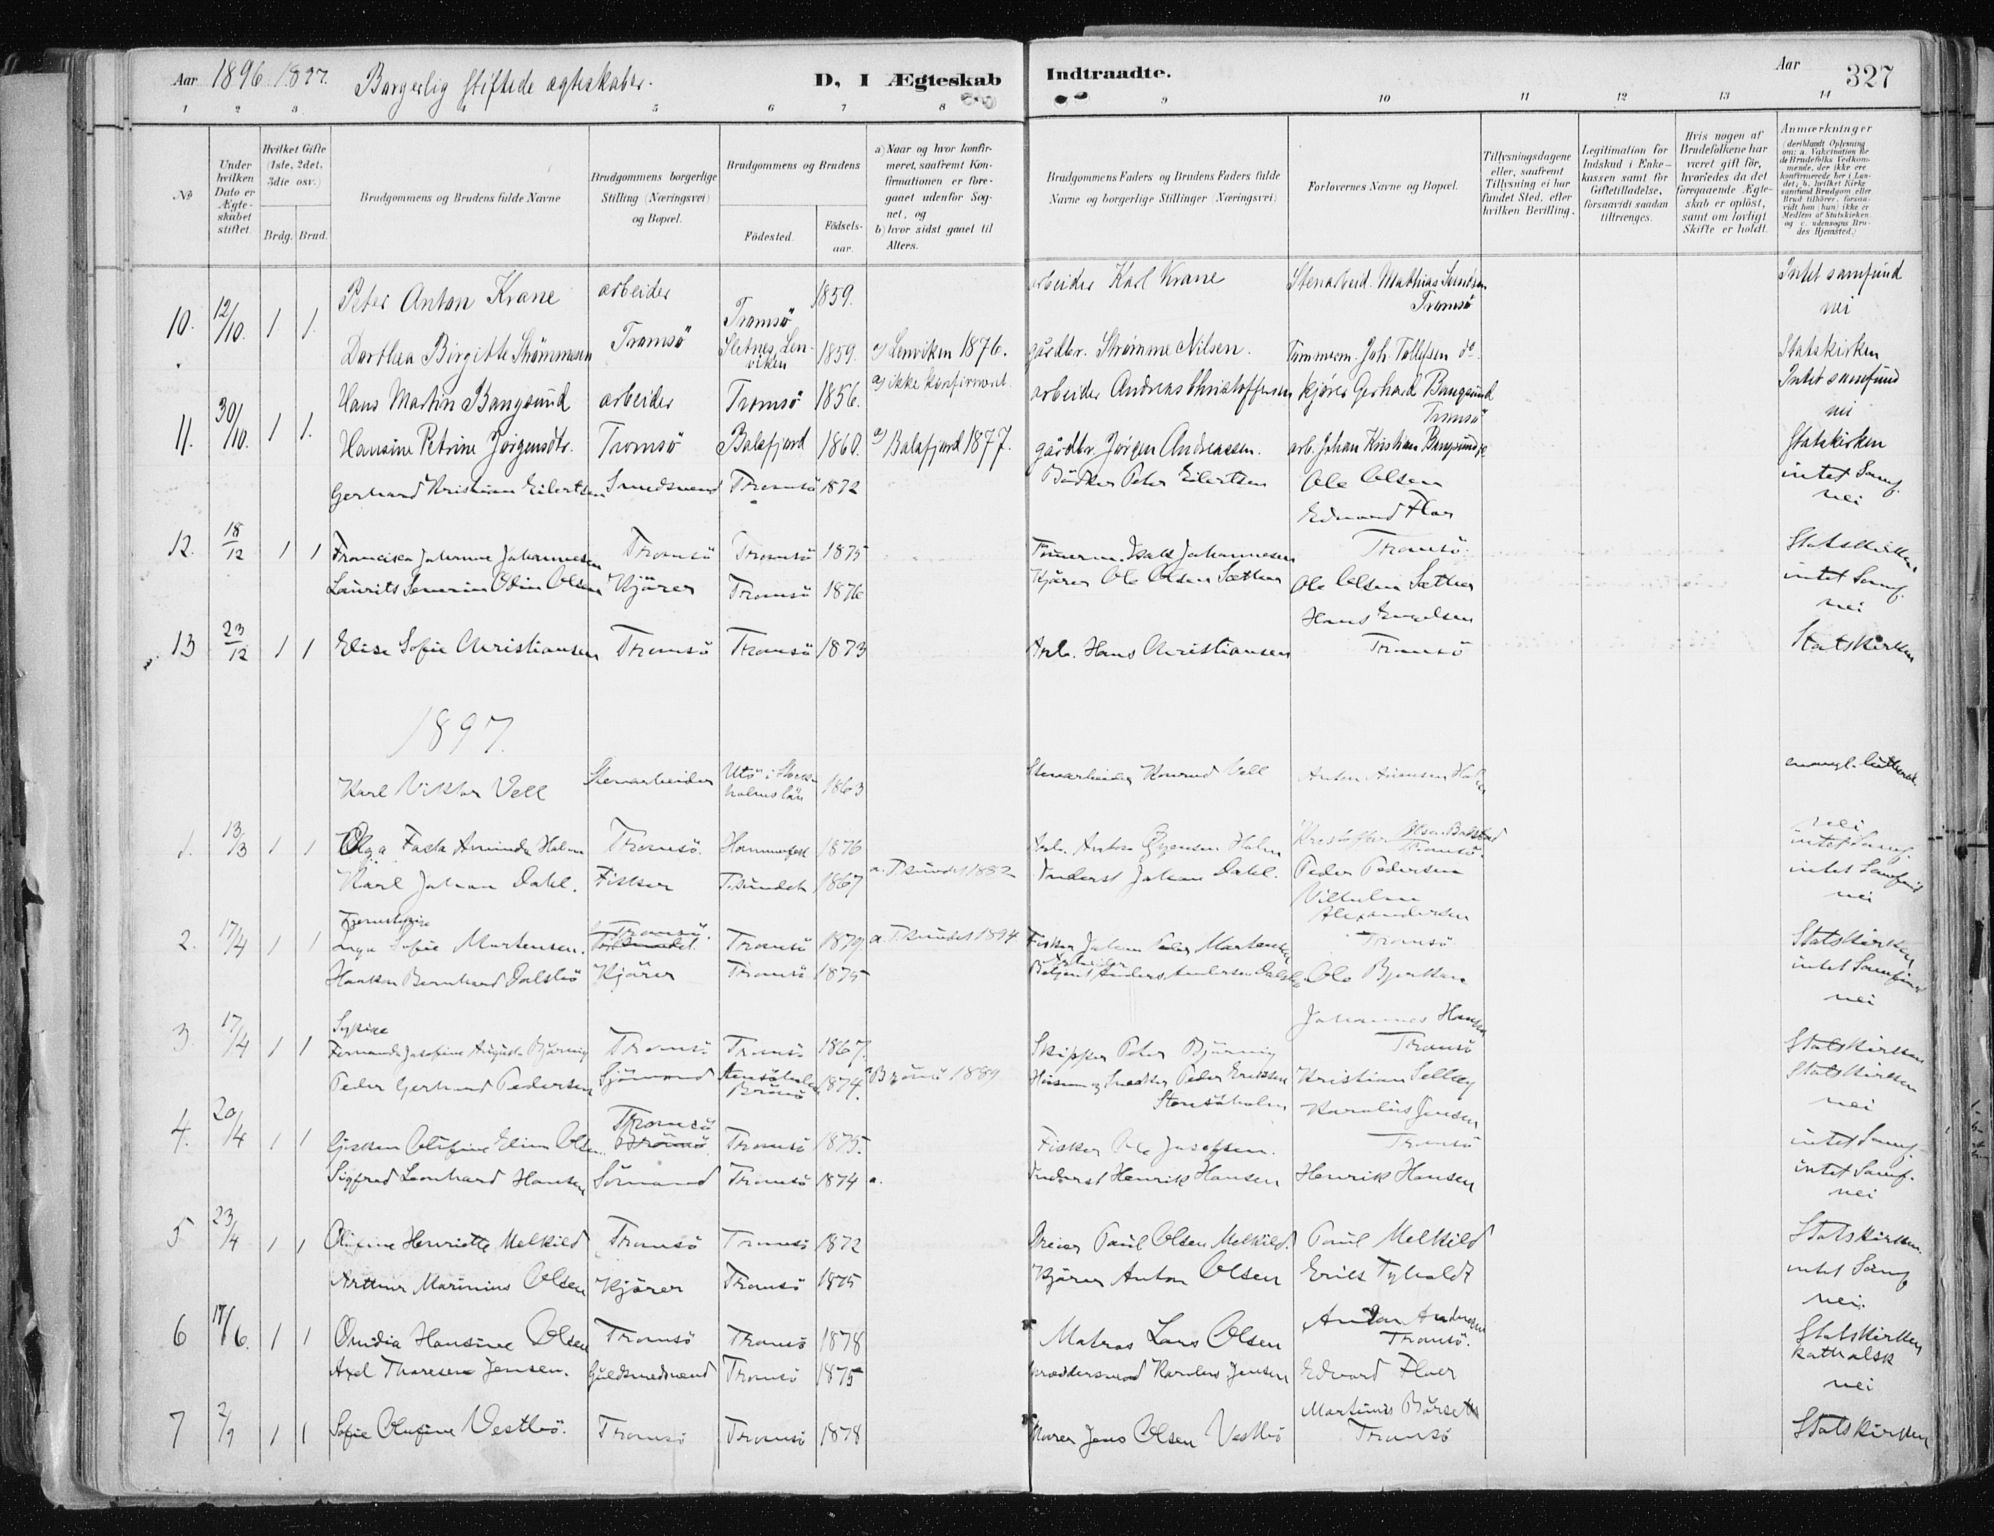 Aar 1896. 1897. Borgerlig stiftede ægteskaber. D, I Ægteskab Indtraadte. Aar 327
1 2 3 4 5 6 7 8 9 10 11 12 13 14
No
Under hvilken Dato er Ægteskabet stiftet.
Hvilket Gifte (1ste, 2det, 3die osv.)
Brdg. Brud.
Brudgommens og Brudens fulde Navne
Brudgommens borgerlige Stilling (Næringsvei) og Bopæl.
Brudgommens og Brudens
Fødested. Fødselsaar.
a) Naar og hvor konfirmeret, saafremt Konfirmationen er foregaaet udenfor Sognet, og
b) hvor sidst gaaet til Alters.
Brudgommens Faders og Brudens Faders fulde Navne og borgerlige Stillinger (Næringsvei)
Forlovernes Navne og Bopæl.
Tillysningsdagene eller, saafremt Tillysning ei har fundet Sted, efter hvilken Bevilling.
Legitimation for Indskud i Enkekassen samt for Giftetilladelse, forsaavidt saadan tiltrænges.
Hvis nogen af Brudefolkene har været gift før, hvorledes da det foregaaende Ægteskab er opløst, samt om lovligt Skifte er holdt.
Anmærkninger
Peter Anton Krane arbeider Tromsö 1859. arbeider Karl Krane Stenarbeid. Mathias
Tromsö
Intet samfund
nei
10. 12/10. 1 1. Dorthea Birgitte Strømmesen Tromsö Sletnes, Lenviken 1859. a) Lenviken 1876. gårdbr. Strømme Nilsen. Tømmerm. Joh. Tollefsen do. Statskirken
Hans Martin Bangsund arbeider Tromsö 1856. a) ikke konfirmeret. arbeider Andreas Christoffersen kjører Gerhard Bangsund
Tromsö
Intet samfund
nei
11. 30/10. 1 1. Hansine Petrine Jørgensdtr. Tromsö Balsfjord 1860. a) Balsfjord 1877. gårdbr. Jørgen Andreassen. arb. Johan Kristian Bangsund Statskirken
Gerhard Kristian Eilertsen Smedsvend Tromsö 1872 Bödker Peter Eilertsen Ole Olsen
Edvard Floer
intet Samf.
nei
12. 18/12 1 1 Francisca Johanne Johannesen Tromsö Tromsö 1875 Isak Johannesen Tromsö. Statskirken
Laurits Severin Odin Olsen Kjörer Tromsö 1876 Kjörer Ole Olsen Sæther Ole Olsen Sæther
Hans Engelsen
intet Samf.
nei
13 23/12 1 1 Elise Sofie Christiansen Tromsö Tromsö 1873 Arb. Hans Christiansen Tromsö Statskirken
1897.
Karl Viktor Vell Stenarbeider Utö i Stockholms län 1863 Stenarbeider Konrad Vell Anton
evangl. luthersk
nei
1. 13/3 1 1 Olga Holm Tromsö. Hammerfest 1876 Arb. Anton Holm Kristoffer Olsen
Tromsö.
intet Samf.
Karl Johan Dahl. Fisker T.sundet 1867 a. T.sundet 1882 Inderst Johan Dahl. Peder Pedersen
Vilhelm
Alexandersen
intet Samfund
nei
2. 17/4 1 1 Inga Sofie Martensen. Tromsö. Tromsö 1879 a. T.sundet 1894 Fisker Johan Peder Martensen Tromsö. Statskirken
Haakon Bernhard Dalsbö Kjörer Tromsö 1875 Anders Andersen Ole Bjerkan
Johannes Hansen
intet Samfund
nei
3. 17/4 1 1 Sypike
Fernanda Josefine Augusta Björnig Tromsö. Tromsö 1867. Skipper Peter Björnig Tromsö Statskirken
Peder Gerhard Pedersen Sjömand Brönö 1874. a. Brönö 1889 Peder Eriksen Kristian Selley
Karolius Jensen
Statskirken
nei
4. 20/4 1 1 Olufine Elim Olsen Tromsö Tromsö 1875. Fisker Ole Josefsen. Tromsö intet Samf.
Sigfred Leonhard Hansen Sömand Tromsö 1874 a. Inderst Henrik Hansen Henrik Hansen intet Samf.
nei
5 23/4 1 1 Olufine Henriette Melkild Tromsö Tromsö 1872 Dreier Paul Olsen Melkild. Paul Melkild Statskirken.
Arthur Marinius Olsen Kjörer Tromsö 1875 Kjörer Anton Olsen Erik Tyholdt
intet Samf
nei.
6 17/6. 1 1 Ovidia Hansine Olsen Tromsö Tromsö 1878 Matros Lars Olsen Anton Andersen
Tromsö.
Statskirken
Axel Jensen. Guldsmedsvend Tromsö 1875 Karolius Jensen Edvard Floer
katholsk
nei
7 2/9 1 1 Sofie Olufine Vestbö. Tromsö Tromsö 1878 Murer Jens Olsen Vestbö Martinus
Tromsö Statskirken